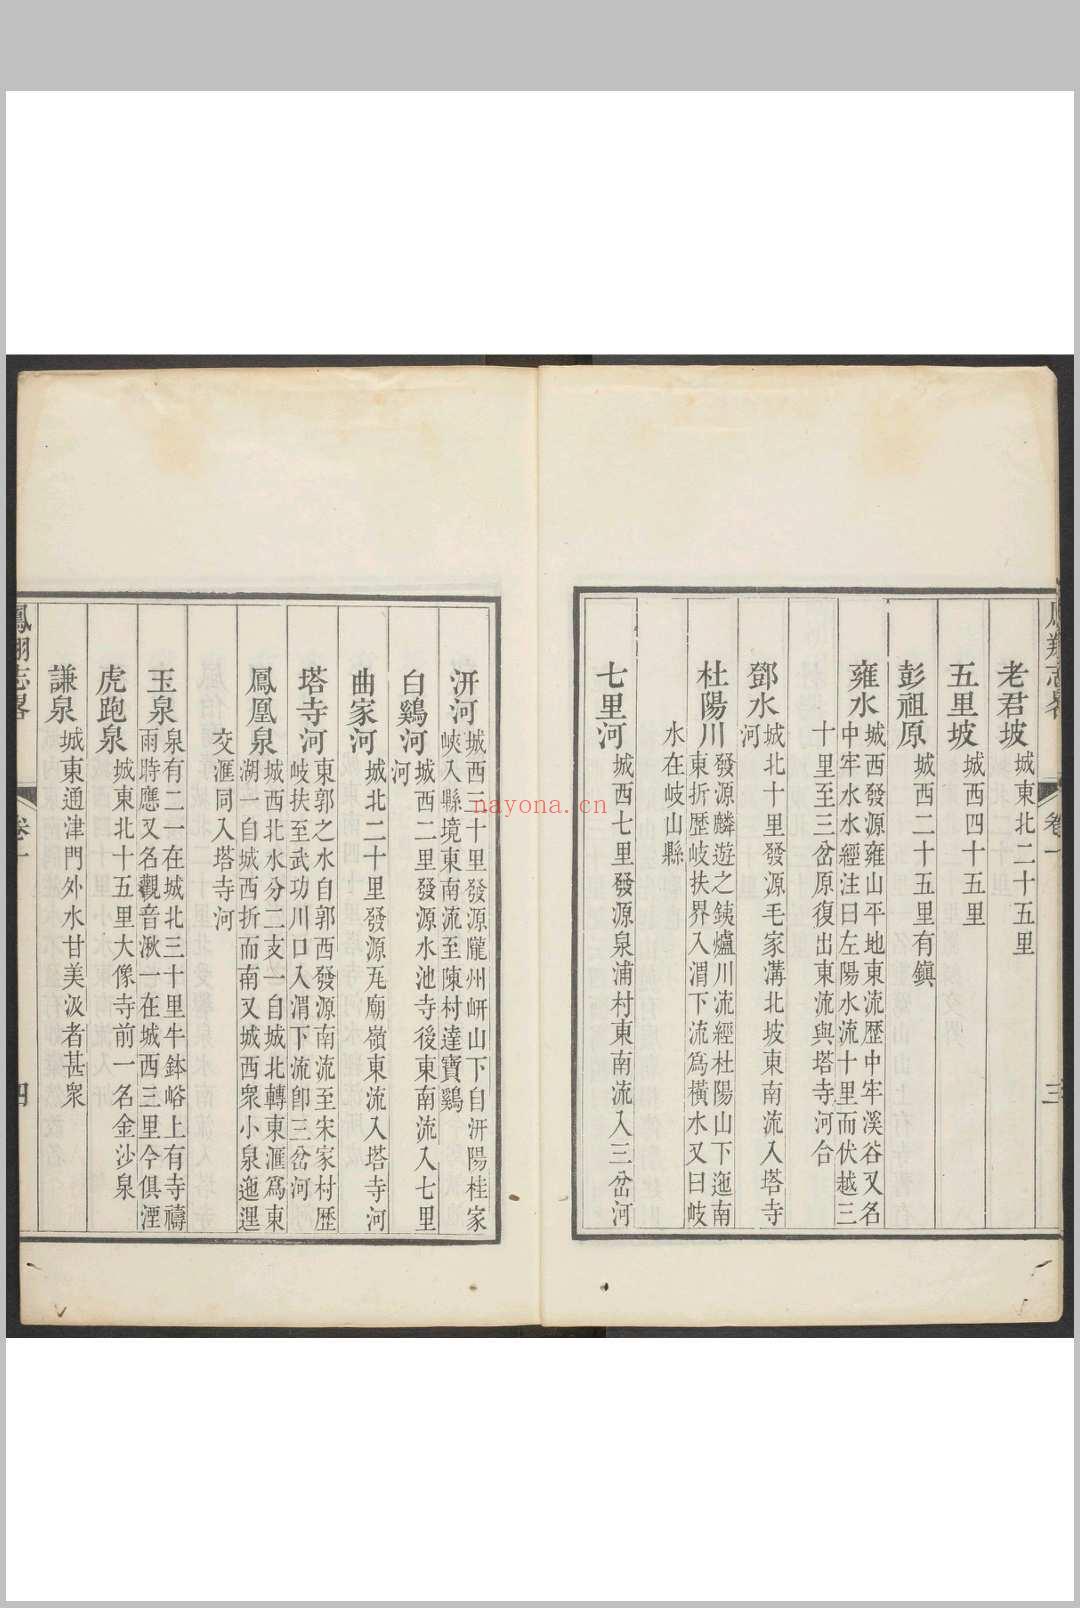 鳳翔志畧
卷一
三
老君坡 城東北二十五里
五里坡 城西四十五里
彭祖原 城西二十五里有鎮
雍水 城西發源雍山平地東流歷中牢溪谷又名
中牢水水經注曰左陽水流十里而伏越三
十里至三岔原復出東流與塔寺河合
鄧水 城北十里發源毛家溝北坡東南流入塔寺
河
杜陽川 發源麟遊之銕爐川流經杜陽山下迤南
東折歷岐扶界入渭下流爲橫水又曰岐
水在岐山縣
七里河 城西七里發源泉浦村東南流入三岔河
汧河 城西三十里發源隴州岍山下自汧陽桂家
峽入縣境東南流至陳村達寶鷄
白鷄河 城西二里發源水池寺後東南流入七里
河
曲家河 城北二十里發源尨廟嶺東流入塔寺河
塔寺河 東郭之水自郭西發源南流至宋家村歷
岐扶至武功川口入渭下流卽三岔河
鳳凰泉 城西北水分二支一自城北轉東滙爲東
湖一自城西折而南又城西衆小泉迤邐
交滙同入塔寺河
玉泉 泉有二一在城北三十里牛鉢峪上有寺禱
雨時應又名觀音湫一在城西三里今俱湮
虎跑泉 城東北十五里大像寺前一名金沙泉
謙泉 城東通津門外水甘美汲者甚衆
鳳翔志畧
卷一
四
nayona.cn